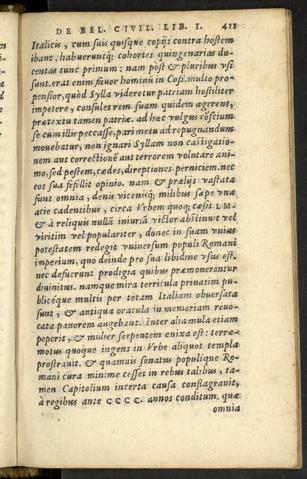 DE BEL. CIVIL. LIB. I. 411
Italicis, cum suis quisque copijs contra hostem
ibant, habueruntq; cohortes quingenarias du-
centas tunc primum: nam post & pluribus usi
sunt. erat enim fauor hominū in Cōss. multo pro-
pensior, quòd Sylla videretur patriam hostiliter
impetere, consules rem suam quidem agerent,
prætextu tamen patriæ. ad hæc vulgus cōscium
se cum illis peccasse, pari metu ad repugnandum
mouebatur, non ignari Syllam non castigatio-
nem aut correctionē aut terrorem volutare ani-
mo, sed pestem, cædes, direptiones, perniciem. nec
eos sua fefellit opinio. nam & prælijs vastata
sunt omnia, denis vicenisq; milibus sæpe vna
acie cadentibus, circa Vrbem quoq; cæsis LM.
& à reliquis nullā iniuriā victor abstinuit vel
viritim vel populariter, donec in suam vnius
potestatem redegit vniuersum populi Romani
imperium, quo deinde pro sua libidine vsus est.
nec defuerunt prodigia quibus præmonerentur
diuinitus. namque mira terricula priuatim pu-
blicéque multis per totam Italiam obuersata
sunt, & antiqua oracula in memoriam reuo-
cata pauorem augebant. Inter alia mula etiam
peperit, & mulier serpentem enixa est: terræ-
motus quoque ingens in Vrbe aliquot templa
prostrauit. & quamuis senatus populique Ro-
mani cura minime cesset in rebus talibus, ta-
men Capitolium incerta causa conflagrauit,
à regibus ante CCCC. annos conditum. quæ
omnia